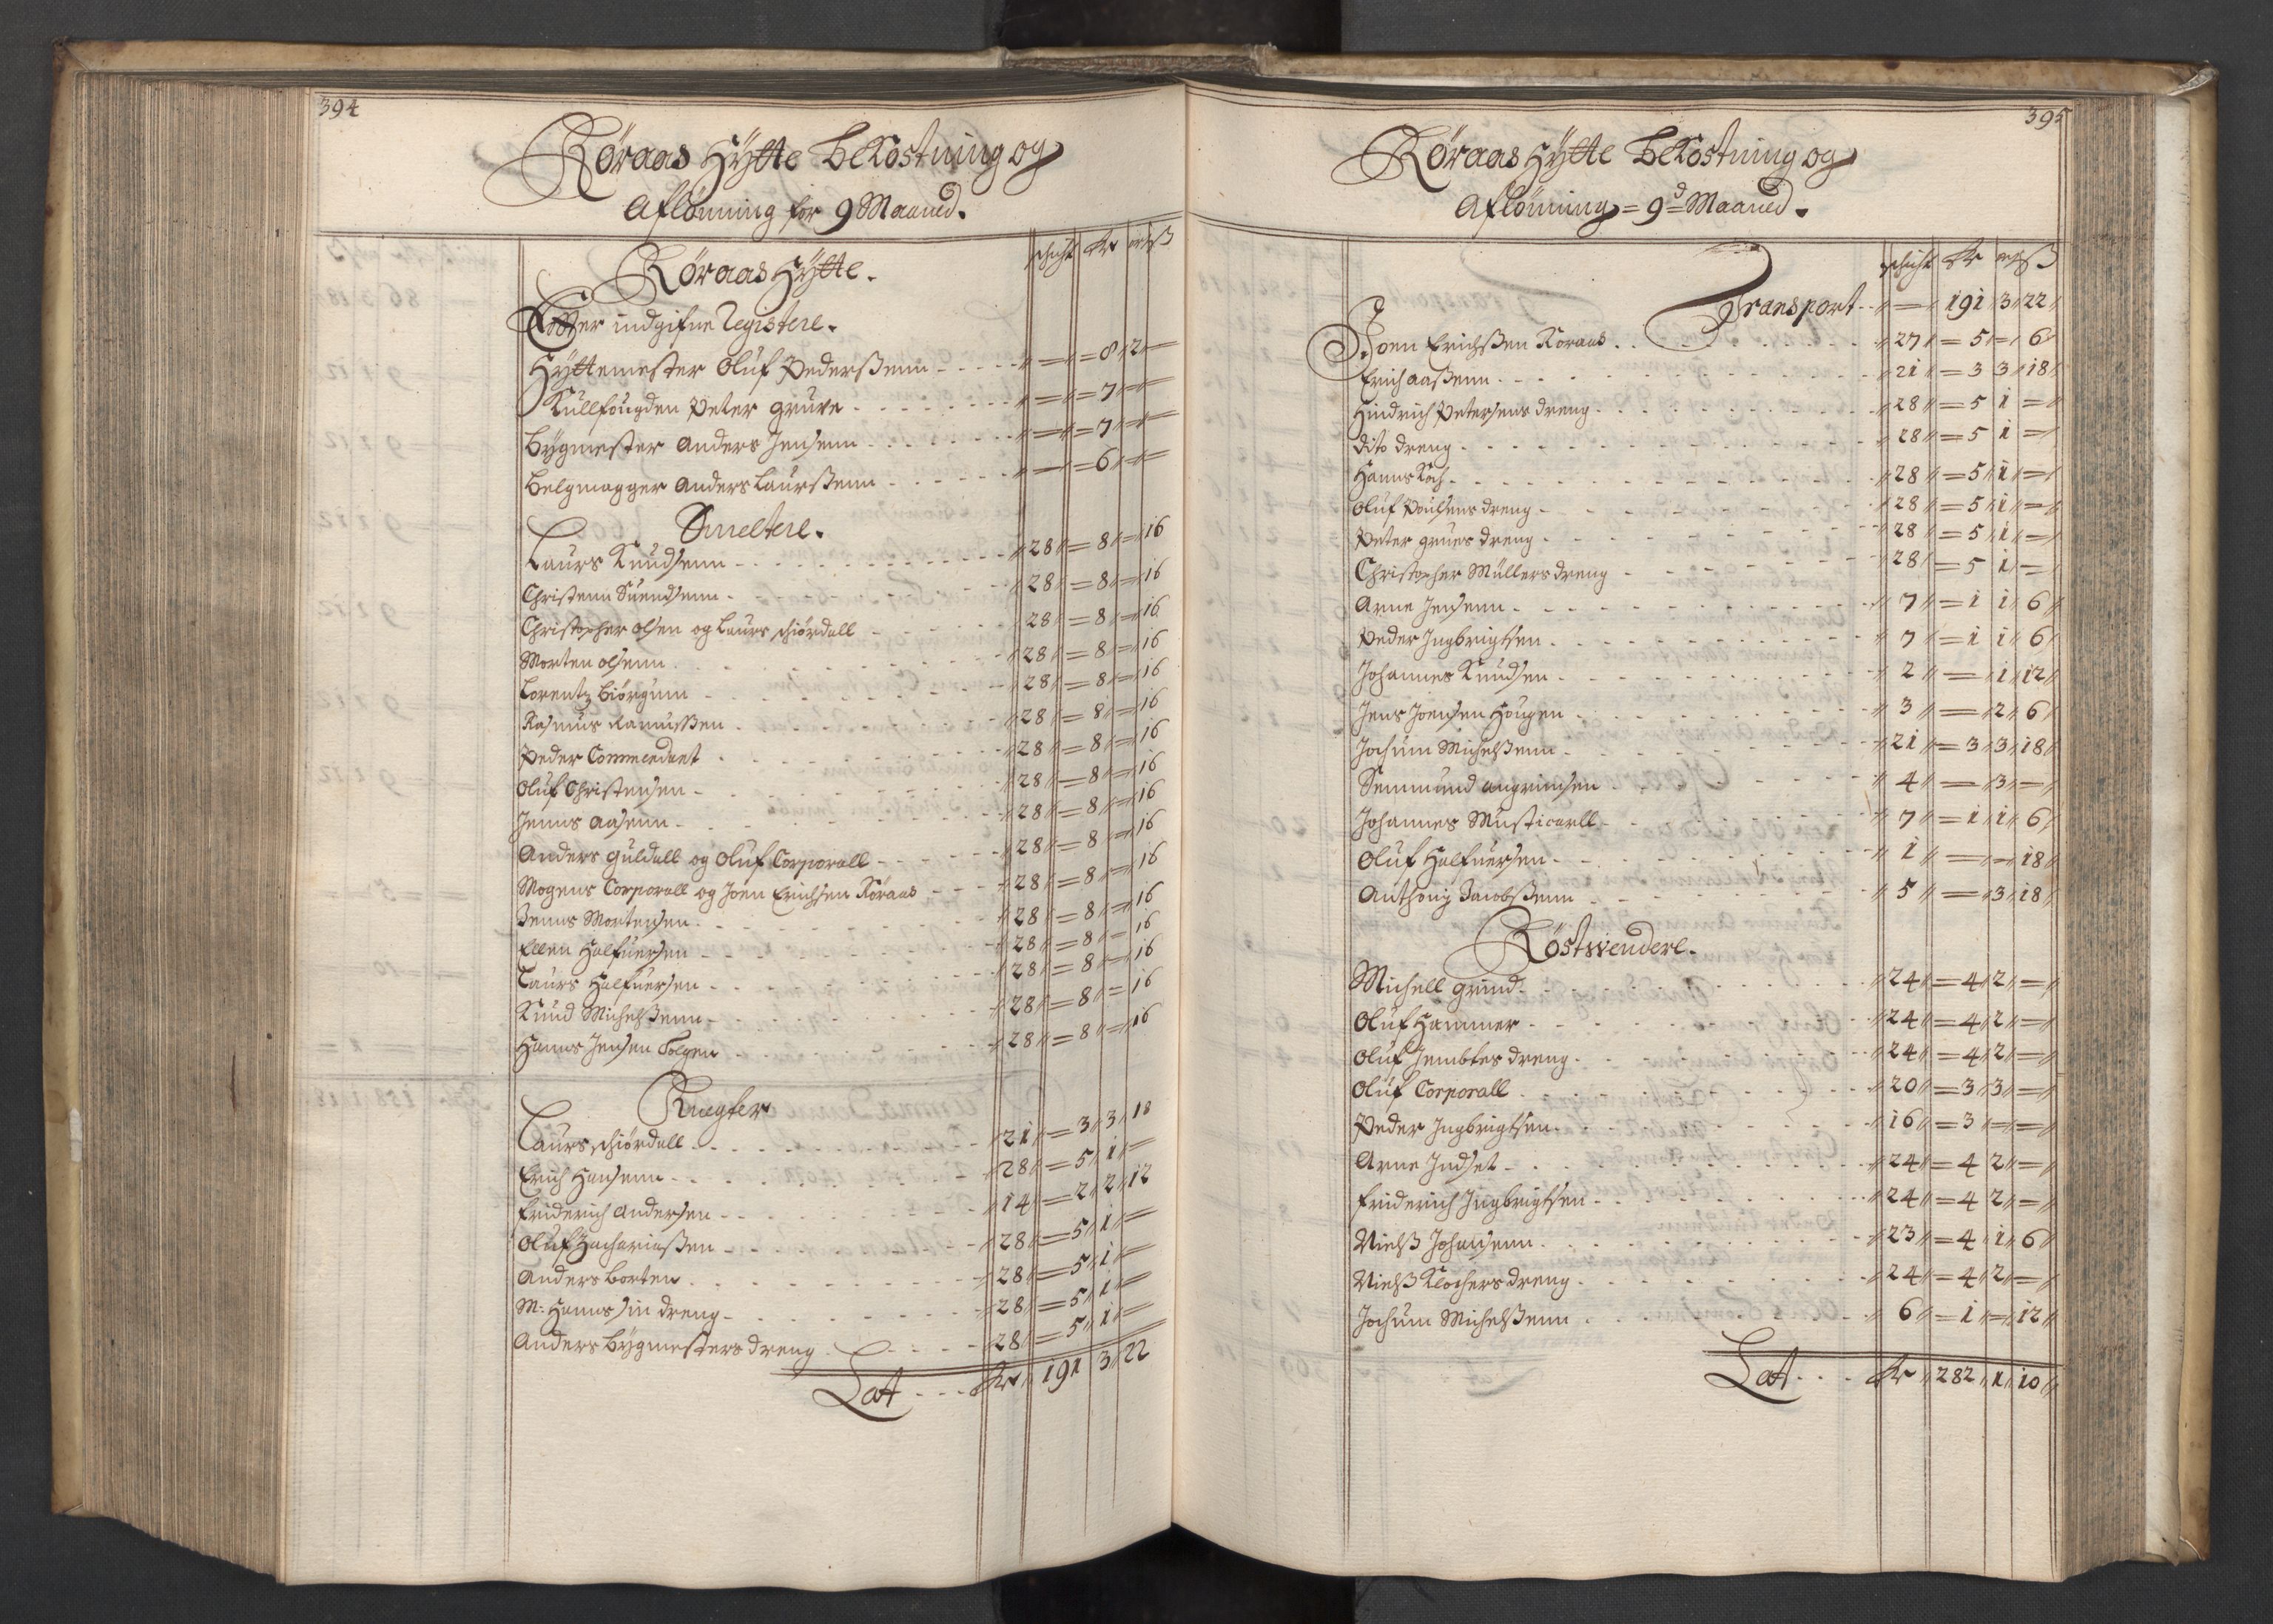 394
Røraas Hÿtte beKostning og
Aflønning for 9 Maaned.
schicht Rr ort ß
Røraas Hÿtte.
Effter indgifne Registere.
Hÿttemester Oluf Pederßenn - - - - - 〃 — 〃 = 8 〃 2 —
Kullfougden Peter gruve - - - - - 〃 — 〃 = 7 〃 =
bÿgmester Anders Jensenn - - - - - 〃 — 〃 = 7 〃 =
belgmagger Anders Laurßenn - - - - - 〃 — 〃 = 6 〃 =
Smeltere.
Laurs Knudsenn - - - - - 〃 28 〃 = 8 〃 = 16
Christenn Suendsenn - - - - - 〃 28 〃 = 8 〃 = 16
Christopher olsen og Laurs schiördall - - - 28 〃 = 8 〃 = 16
Morten olsenn - - - - - 〃 28 〃 = 8 〃 = 16
Lorentz biörgumn - - - - - 〃 28 〃 = 8 〃 = 16
Rasmus Ramußen - - - - - 〃 28 〃 = 8 〃 = 16
Peder Commedant - - - - - 〃 28 〃 = 8 〃 = 16
Oluf Christensen - - - - - 〃 28 〃 = 8 〃 = 16
Jenns Aasenn - - - - - 〃 28 〃 = 8 〃 = 16
Anders guldall og Oluf Corporall - - - - 〃 28 〃 = 8 〃 = 16
Mogens Corporall og Joen Erichsen Röraas - - - 〃 28 〃 = 8 〃 = 16
Jenns Mortensen - - - - - 〃 28 〃 = 8 〃 = 16
Ellen Halfuersen - - - - - 〃 28 〃 = 8 〃 = 16
Laurs Halfuersen - - - - - 〃 28 〃 = 8 〃 = 16
Knud Michelßenn - - - - - 〃 28 〃 = 8 〃 = 16
Hanns Jensen Solgen - - - - - 〃 28 〃 = 8 〃 = 16
Knegter
Laurs schiördall - - - - - 〃 21 〃 = 3 〃 3 〃 18
Erich Hansenn - - - - - 〃 28 〃 = 5 〃 1 〃 =
Friderich Andersen - - - - - 〃 14 〃 = 2 〃 2 〃 12
Oluf Zachariaßen - - - - - 〃 28 〃 = 5 〃 1 〃 =
Anders borten - - - - - 〃 28 〃 = 5 〃 1 〃 =
M: Hanns sin dreng - - - - - 〃 28 〃 = 5 〃 1 〃 =
Anders bÿgmesters dreng - - - - - 〃 28 〃 = 5 〃 1 〃 =
Lat - - - Rr 〃 191 〃 3 〃 22
395
Røraas Hÿtte beKostning og
Aflønning = 9d Maaned.
schicht Rr ort ß
Transport - - 〃 — 〃 191 〃 3 〃 22 〃
Joen Erichßen Röraas - - - - - 〃 27 〃 = 5 〃 = 〃 6 〃
Erich Aaßenn - - - - - 〃 21 〃 = 3 3 〃 18 〃
Hindrich Petersens dreng - - - - - 〃 28 〃 = 5 1 = 〃
dito dreng - - - - - 〃 28 〃 = 5 1 = 〃
Hanns Koch - - - - - 〃 28 〃 = 5 〃 1 〃 = 〃
Oluf Poulsens dreng - - - - - 〃 28 〃 = 5 〃 1 〃 = 〃
Peter grues dreng - - - - - 〃 28 〃 = 5 〃 1 〃 = 〃
Christopher Müllers dreng - - - - - 〃 28 〃 = 5 1 〃 = 〃
Arne Jensenn - - - - - 〃 7 〃 = 1 1 〃 6 〃
Peder Ingbrigtsen - - - - - 〃 7 〃 = 1 1 〃 6 〃
Johannes Knudsen - - - - - 〃 2 〃 = 〃 1 〃 12 〃
Jens Joensen Hougen - - - - - 〃 3 〃 = 〃 2 〃 6 〃
Jochum Michelßenn - - - - - 〃 21 〃 = 3 〃 3 〃 18 〃
Semmund angrimsen - - - - - 〃 4 〃 = 〃 3 〃 = 〃
Johannes Musticarll - - - - - 〃 7 〃 = 1 〃 1 〃 6 〃
Oluf Halfuersen - - - - - 〃 1 〃 = 〃 = 〃 18 〃
Anthonÿ Jacobßenn - - - - - 〃 5 〃 = 〃 3 〃 18 〃
Röstwendere.
Michell grind - - - - - 〃 24 〃 = 4 〃 2 〃 = 〃
Oluf Hammer - - - - - 〃 24 〃 = 4 〃 2 〃 = 〃
Oluf Jembtes dreng - - - - - 〃 24 〃 = 4 〃 2 〃 = 〃
Oluf Corporall - - - - - 〃 20 〃 = 3 〃 3 〃 = 〃
Peder Ingbrigtsen - - - - - 〃 16 〃 = 3 〃 = 〃 = 〃
Arne Indset - - - - - 〃 24 〃 = 4 2 〃 = 〃
Friderich Ingbrigtsen - - - - - 〃 24 〃 = 4 2 〃 = 〃
Nielß Johansenn - - - - - 〃 23 〃 = 4 〃 1 〃 6 〃
Nielß Klochers dreng - - - - - 〃 24 〃 = 4 〃 2 〃 = 〃
Jochum Michelßenn - - - - - 〃 6 〃 = 1 〃 = 〃 12 〃
Lat - - - Rr 〃 282 〃 1 〃 10 〃